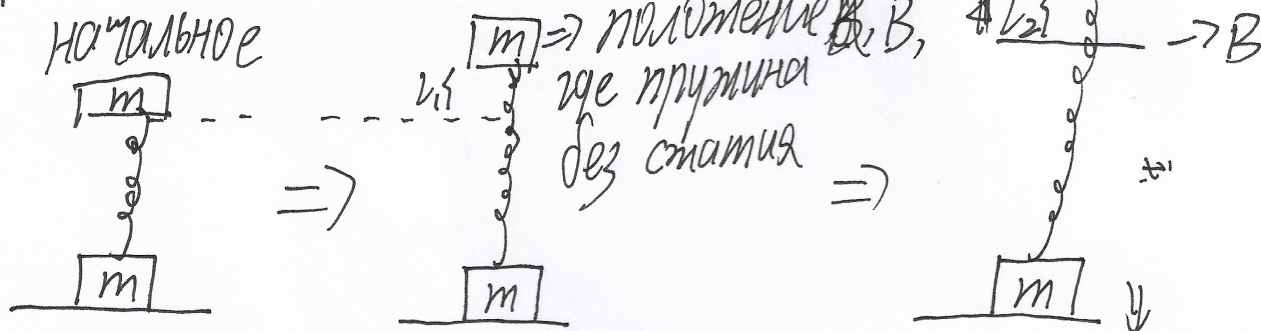 начальное
m
m
m => положение В,
L₁{ где пружина
без сжатия
m
L₂{ -> В
m